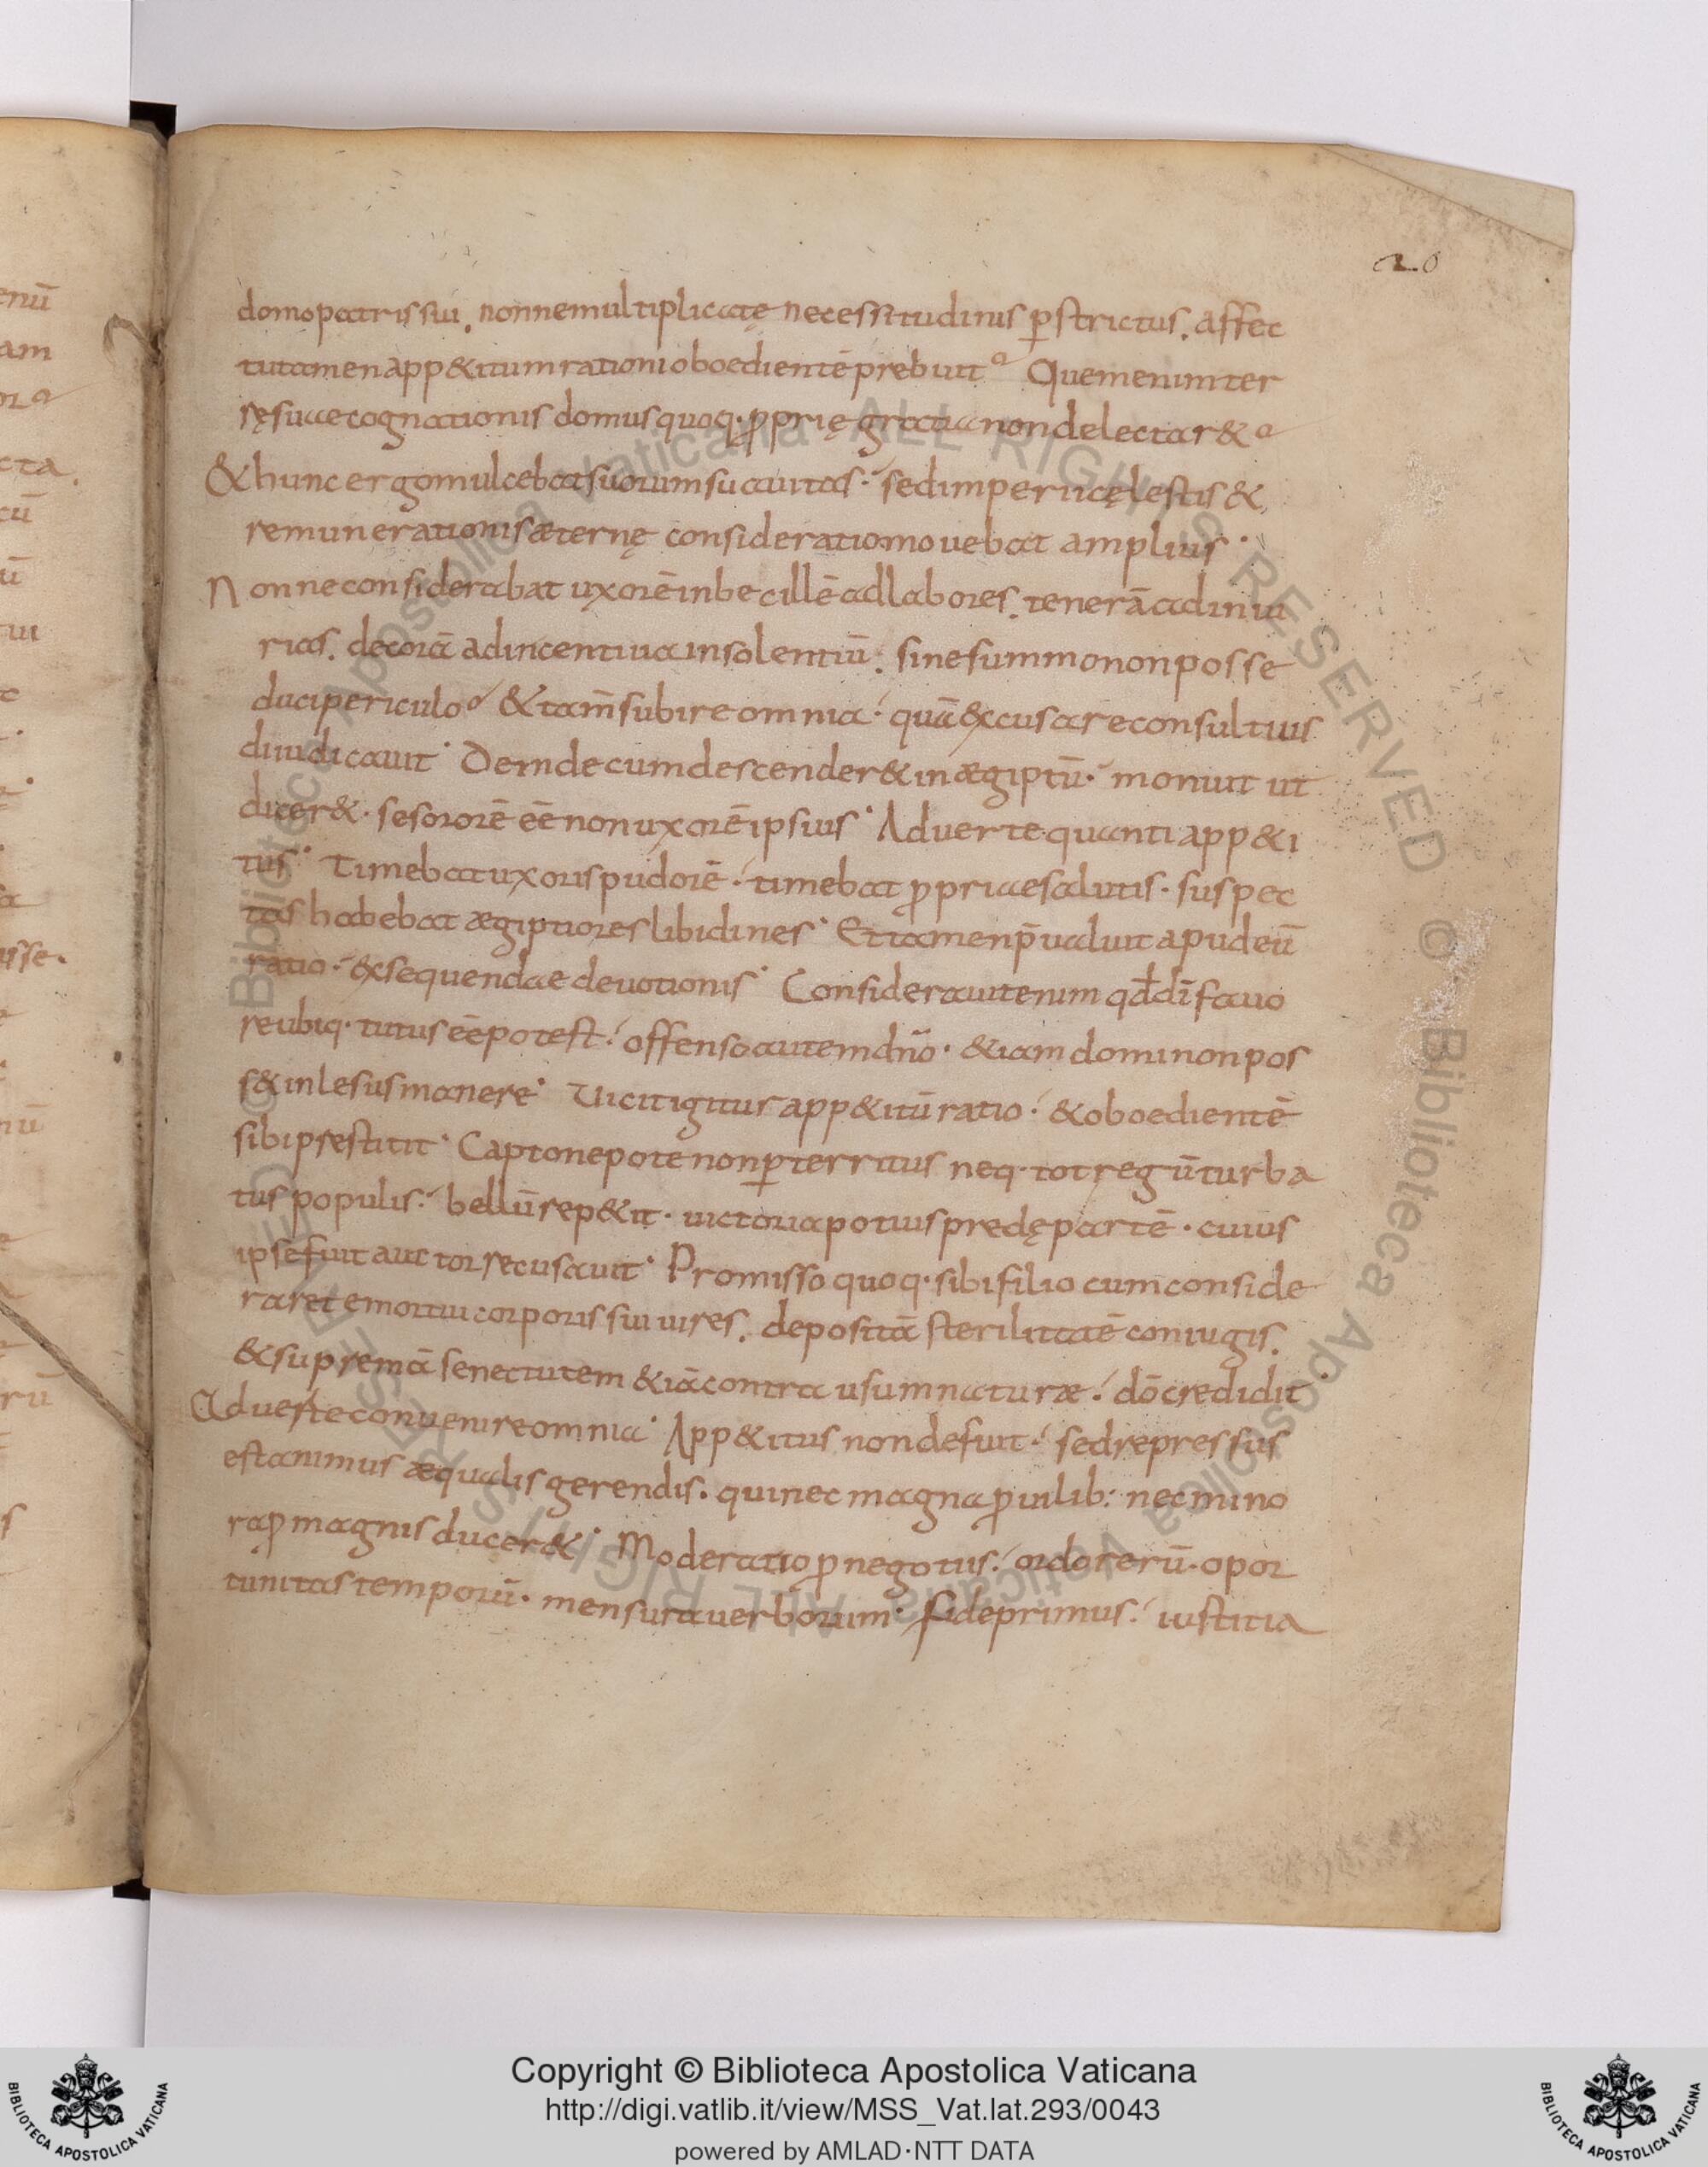 20
domo patris sui. nonne multiplicatę necessitudinis p̱strictus. affec
tu tamen app&itum rationi oboediente᷄ prebuit Quem enim ter
rę suae cognationis domus quoq· ꝓprię gratia non delectar&
& hunc ergo mulcebat suorum suauitas· sed imperii cęlestis &
remunerationis æternę consideratio mouebat amplius·
Nonne considerabat uxorē inbecillē ad labores. tenerā ad iniu
rias. decorā ad incentiua insolentiū. sine summo non posse
duci periculo & tam̄ subire omnia· quā excusare consultius
diiudicauit· Deinde cum descender& in ægiptū· monuit ut
dicer&· se sororē ēe non uxorē ipsius· Aduerte quanti app&i
tus· Timebat uxoris pudorē· timebat ꝓpriae salutis· suspec
tas habebat ægiptiores libidines· Et tamen p̄ualuit apud eū
ratio· exsequendae deuotionis· Considerauit enim qd̄ dī fauo
re ubiq· tutus ēe potest· offenso autem dño· &iam domi non pos
s& inlesus manere· Uicit igitur app&itū ratio· & oboedientē
sibi prestitit· Capto nepote non ꝑterritus neq· tot regū turba
tus populis· bellū rep&it· uictoria potius predę partē· cuius
ipse fuit auctor recusauit· Promisso quoq· sibi filio cum conside
raret emortui corporis sui uires. depositā sterilitatē coniugis.
& supremā senectutem &iā contra usum naturæ· dō credidit·
Aduerte conuenire omnia· App&itus non defuit· sed repressus
est animus æqualis gerendis. qui nec magna ꝓ uilib: nec mino
ra ꝓ magnis ducer&· Moderatio ꝓ negotiis· ordo rerū· opor
tunitas temporū· mensura uerborum· fide primus· iustitia
Copyright © Biblioteca Apostolica Vaticana
http://digi.vatlib.it/view/MSS_Vat.lat.293/0043
powered by AMLAD·NTT DATA